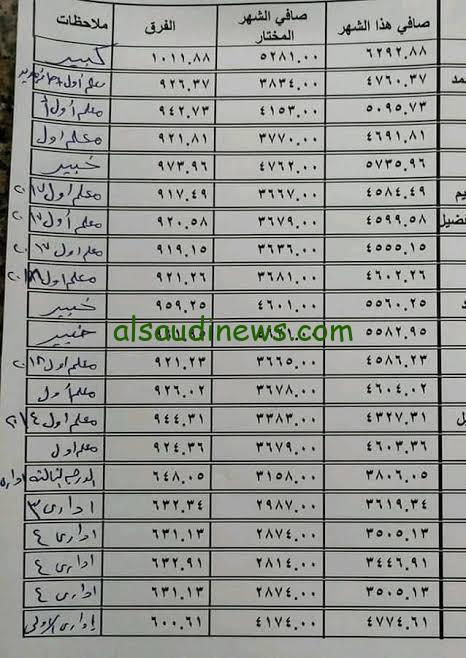 صافي هذا الشهر صافي الشهر المختار الفرق ملاحظات
٦٢٩٢.٨٨ ٥٢٨١.٠٠ ١٠١١.٨٨ كبير
مد ٤٧٦٠.٣٧ ٣٨٣٤.٠٠ ٩٢٦.٣٧ معلم أول
٥٠٩٥.٧٣ ٤١٥٣.٠٠ ٩٤٢.٧٣ معلم أول أ
٤٦٩١.٨١ ٣٧٧٠.٠٠ ٩٢١.٨١ معلم اول
٥٧٣٥.٩٦ ٤٧٦٢.٠٠ ٩٧٣.٩٦ خبير
يم ٤٥٨٤.٤٩ ٣٦٦٧.٠٠ ٩١٧.٤٩ معلم اول ٢٠١٧
فضيل ٤٥٩٩.٥٨ ٣٦٧٩.٠٠ ٩٢٠.٥٨ معلم أول
٤٥٥٥.١٥ ٣٦٣٦.٠٠ ٩١٩.١٥ معلم اول ٢٠١٧
٤٦٠٢.٢٦ ٣٦٨١.٠٠ ٩٢١.٢٦ معلم اول
٥٥٦٠.٢٥ ٤٦٠١.٠٠ ٩٥٩.٢٥ خبير
٥٥٨٢.٩٥ خبير
alsaudinews.com
٤٥٨٦.٢٣ ٣٦٦٥.٠٠ ٩٢١.٢٣ معلم اول
٤٦٠٤.٠٢ ٣٦٧٨.٠٠ ٩٢٦.٠٢ معلم أول
يل ٤٣٢٧.٣١ ٣٣٨٣.٠٠ ٩٤٤.٣١ معلم اول
٤٦٠٣.٣٦ ٣٦٧٩.٠٠ ٩٢٤.٣٦ معلم اول
٣٨٠٦.٠٥ ٣١٥٨.٠٠ ٦٤٨.٠٥ الدرجه الثالثه
٣٦١٩.٣٤ ٢٩٨٧.٠٠ ٦٣٢.٣٤ ادارى ٣
٣٥٠٥.١٣ ٢٨٧٤.٠٠ ٦٣١.١٣ ادارى ٤
٣٤٤٦.٩١ ٢٨١٤.٠٠ ٦٣٢.٩١ ادارى ٤
٣٥٠٥.١٣ ٢٨٧٤.٠٠ ٦٣١.١٣ ادارى ٤
٤٧٧٤.٦١ ٤١٧٤.٠٠ ٦٠٠.٦١ إدارى الاولى